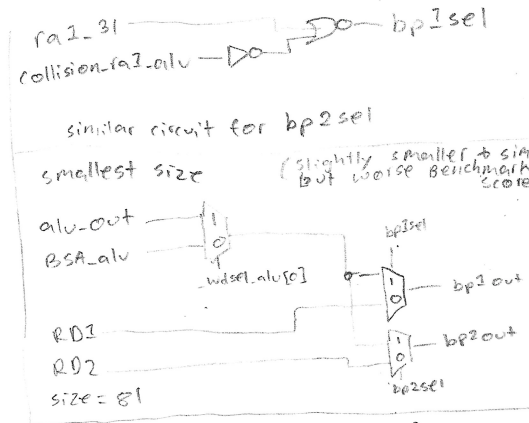 ra1_31
bp1sel
collision_ra1_alu
similar circuit for bp2sel
smallest size
(slightly smaller & sim
but worse Benchmark
score
alu_out
1
0
BSA_alu
wdsel_alu[0]
bp1sel
1
0
bp1out
RD1
RD2
1
0
bp2out
bp2sel
size = 81